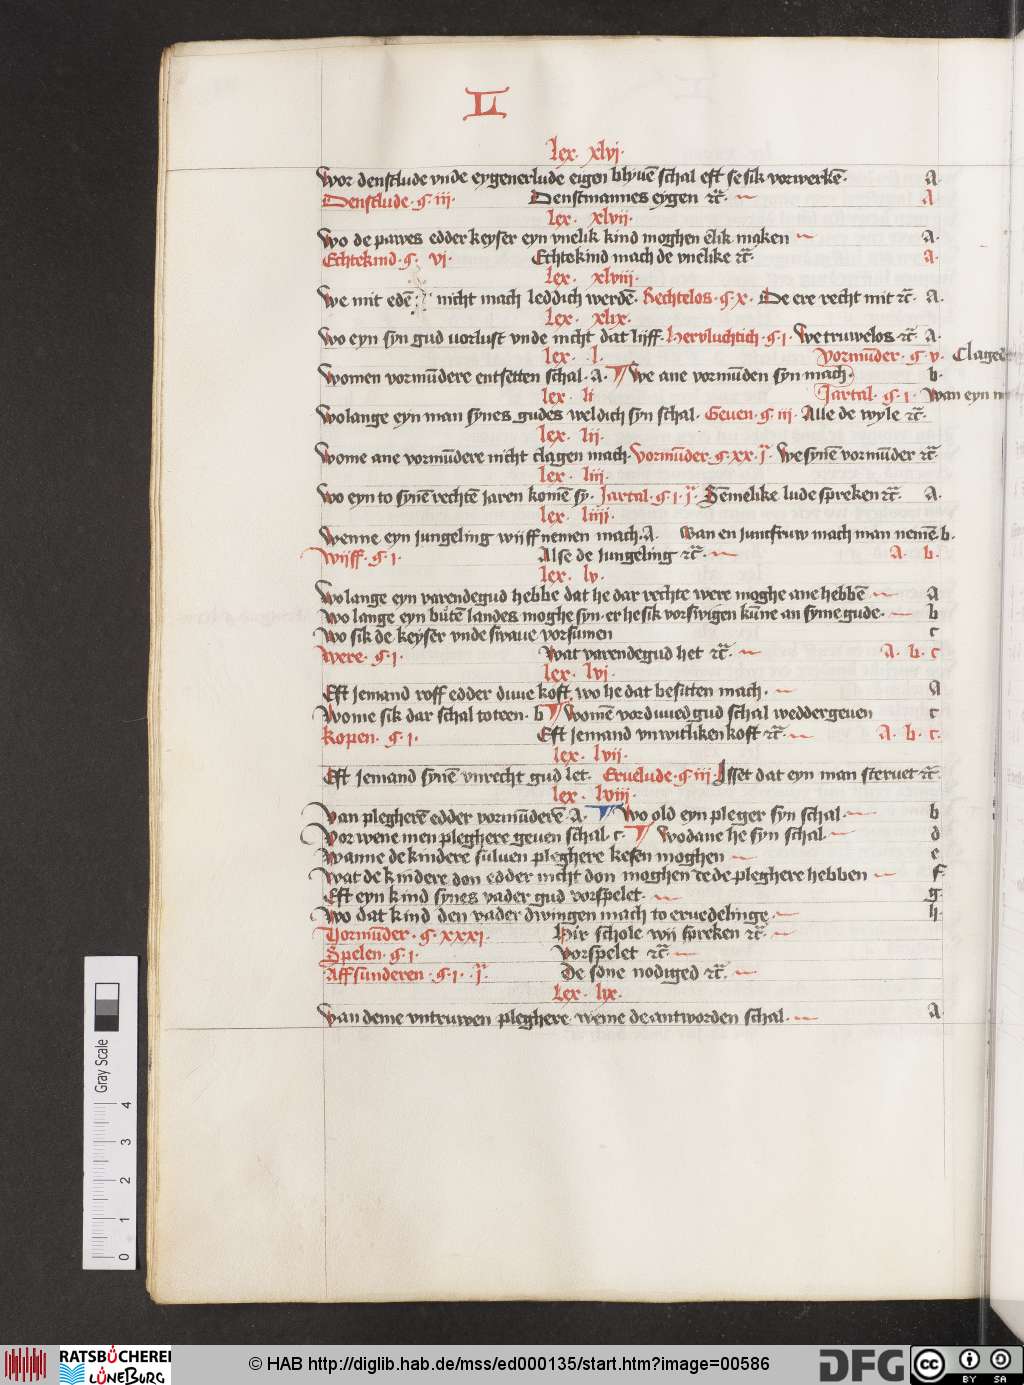 L
lex. xlvi.
Wor denstlude vnde eygenerlude eigen blyuē schal eft se sik vorwerkē. a.
Denstlude. ꝯ. iii. Denstmannes eygen ⁊c̄. a
lex. xlvii.
Wo de pawes edder keyser eyn vnelik kind moghen elik maken a.
Echtekind. ꝯ. vi. Echtekind mach de vnelike ⁊c̄. a.
lex. xlviii.
We mit edē nicht mach leddich werdē. Rechtelos. ꝯ. x. De ere recht mit ⁊c̄. a.
lex. xlix.
Wo eyn syn gud uorlust vnde nicht dat lijff. Hervluchtich. ꝯ. i. We truwelos ⁊c̄ a.
lex. l. Vormūder. ꝯ. v. Claged
Women vormūdere entsetten schal. a. ¶ We ane vormūden syn mach. b.
lex. li Jartal. ꝯ. i. Wan eyn
Wolange eyn man synes gudes weldich syn schal. Geuen. ꝯ. iii. Alle de wyle ⁊c̄.
lex. lii.
Wome ane vormūdere nicht clagen mach. Vormūder. ꝯ. xx. j. We synē vormūder ⁊c̄
lex. liii.
Wo eyn to synē rechtē jaren komē sy. Jartal. ꝯ. i. j. Semelike lude spreken ⁊c̄. a.
lex. liiii.
Wenne eyn jungeling wijff nemen mach. A. Wan en juncfruw mach man nemē b.
Wijff. ꝯ. i. Alse de jungeling ⁊c̄. a. b.
lex. lv.
Wolange eyn varendegud hebbe dat he dar rechte were moghe ane hebbē a
Wo lange eyn butē landes moghe syn er he sik vorswigen kūne an syme gude. b
Wo sik de keyser vnde swaue vorsumen c
Were. ꝯ. i. Wat varendegud het ⁊c̄. a. b. c
lex. lvi.
Eft jemand roff edder duue koft, wo he dat besitten mach. a
Wome sik dar schal toteen. b ¶ Womē vorduued gud schal weddergeuen c
Kopen. ꝯ. i. Eft jemand vnwitliken koft ⁊c̄. a. b. c.
lex. lvii.
Eft jemand synē vnrecht gud let. Eruelude. ꝯ. iii. Isset dat eyn man steruet ⁊c̄.
lex. lviii.
Van plegherē edder vormūderē. A. ¶ Wo old eyn pleger syn schal b
Vor wene men pleghere geuen schal. c. ¶ Wodane he syn schal d
Wanne de kindere suluen pleghere kesen moghen e
Wat de kindere don edder nicht don moghen de de pleghere hebben f.
Eft eyn kind synes vader gud vorspelet. g.
Wo dat kind den vader dwingen mach to eruedelinge h.
Vormūder. ꝯ. xxxi. Hir schole wij spreken ⁊c̄.
Spelen. ꝯ. i. Vorspelet ⁊c̄.
Affsunderen. ꝯ. i. j. De sone nodiged ⁊c̄.
Lex. lix.
Van deme vntruwen pleghere weme de antworden schal. a
Gray Scale
0 1 2 3 4
RATSBÜCHEREI LÜNEBURG
© HAB http://diglib.hab.de/mss/ed000135/start.htm?image=00586
DFG
cc BY SA